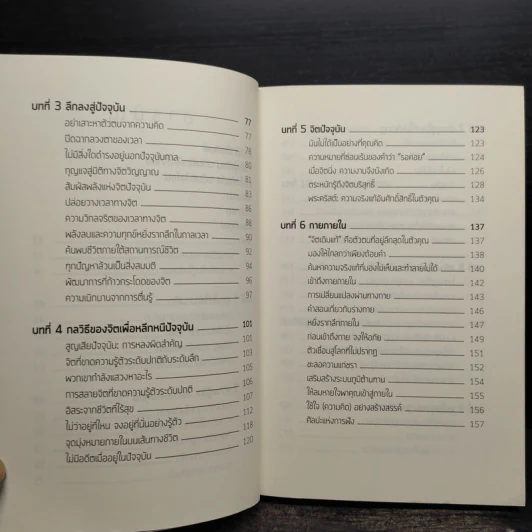 บทที่ 3 ลึกลงสู่ปัจจุบัน 77
อย่าเสาะหาตัวตนจากความคิด 77
ปิดฉากลวงตาของเวลา 78
ไม่มีสิ่งใดดำรงอยู่นอกปัจจุบันกาล 80
กุญแจสู่มิติทางจิตวิญญาณ
สัมผัสพลังแห่งจิตปัจจุบัน
ปล่อยวางเวลาทางจิต
ความวิกลจริตของเวลาทางจิต 88
พลังลบและความทุกข์หยั่งรากลึกในกาลเวลา 90
ค้นพบชีวิตภายใต้สถานการณ์ชีวิต 92
ทุกปัญหาล้วนเป็นสิ่งสมมติ 94
พัฒนาการที่ก้าวกระโดดของจิต 96
ความเบิกบานจากการตื่นรู้ 97
บทที่ 4 กลวิธีของจิตเพื่อหลีกหนีปัจจุบัน 101
สูญเสียปัจจุบัน: การหลงผิดสำคัญ 101
จิตที่ขาดความรู้ตัวระดับปกติกับระดับลึก 103
พวกเขากำลังแสวงหาอะไร 105
การสลายจิตที่ขาดความรู้ตัวระดับปกติ 106
อิสระจากชีวิตที่ไร้สุข 107
ไม่ว่าอยู่ที่ไหน จงอยู่ที่นั่นอย่างรู้ตัว 112
จุดมุ่งหมายภายในบนเส้นทางชีวิต 118
ไม่มีอดีตเมื่ออยู่ในปัจจุบัน 120
บทที่ 5 จิตปัจจุบัน 123
มันไม่ได้เป็นอย่างที่คุณคิด 123
ความหมายที่ซ่อนเร้นของคำว่า "รอคอย" 124
เมื่อจิตนิ่ง ความงามจึงบังเกิด 126
ตระหนักรู้ถึงจิตบริสุทธิ์ 128
พระคริสต์: ความจริงแท้อันศักดิ์สิทธิ์ในตัวคุณ 134
บทที่ 6 กายภายใน 137
"จิตเดิมแท้" คือตัวตนที่อยู่ลึกสุดในตัวคุณ 137
มองให้ไกลกว่าเพียงถ้อยคำ 138
ค้นหาความจริงแท้ที่มองไม่เห็นและทำลายไม่ได้ 140
เข้าถึงกายภายใน 142
การเปลี่ยนแปลงผ่านทางกาย 142
คำสอนเกี่ยวกับร่างกาย 144
หยั่งรากลึกภายใน 147
ก่อนเข้าถึงกาย จงให้อภัย 149
ตัวเชื่อมสู่โลกที่ไม่ปรากฏ 151
ชะลอความแก่ชรา 152
เสริมสร้างระบบภูมิต้านทาน 154
ให้ลมหายใจพาคุณเข้าสู่ภายใน 155
ใช้ใจ (ความคิด) อย่างสร้างสรรค์ 156
ศิลปะแห่งการฟัง 157